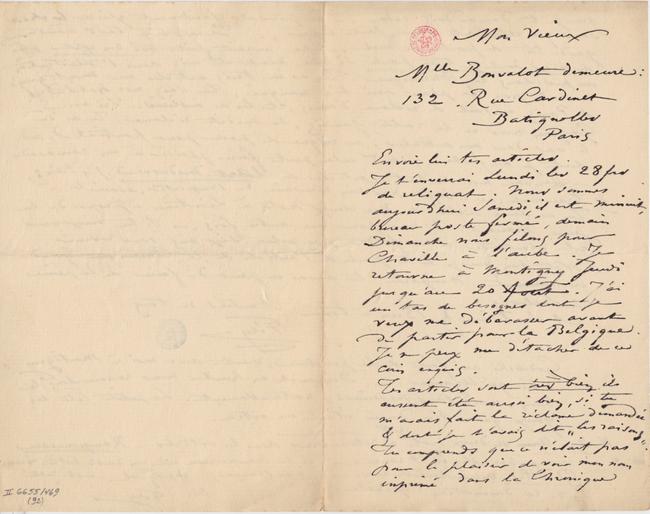 Mon Vieux
Mlle Bonvalot demeure :
132. Rue Cardinet
Batignolles
Paris
Envoie lui tes articles.
Je t'enverrai Lundi les 28 frs
de reliquat. Nous sommes
aujourd'hui Samedi, il est minuit,
bureau poste fermé, demain
Dimanche nous filons pour
Chaville à l'aube. Je
retourne à Montigny Jeudi
jusqu'au 20 Août. J'ai
un tas de besognes dont je
veux me débarasser avant
de partir pour la Belgique.
Je ne peux me détacher de ce
coin exquis.
Tes articles sont très bien, ils
aussent été aussi bien, si tu
m'avais fait la réclame demandée
& dont je t'avais dit "les raisons".
Tu comprends que ce n'était pas
pour le plaisir de voir mon nom
imprimé dans la Chronique
II 6655/469
(92)